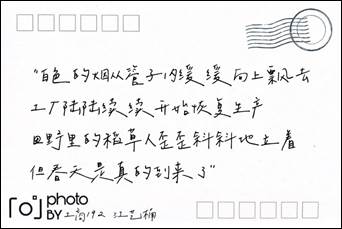 "白色的烟从管子内缓缓向上飘去
工厂陆陆续续开始恢复生产
田野里的稻草人歪歪斜斜地立着
但春天是真的到来了"
photo
BY 工商192 江艺楠